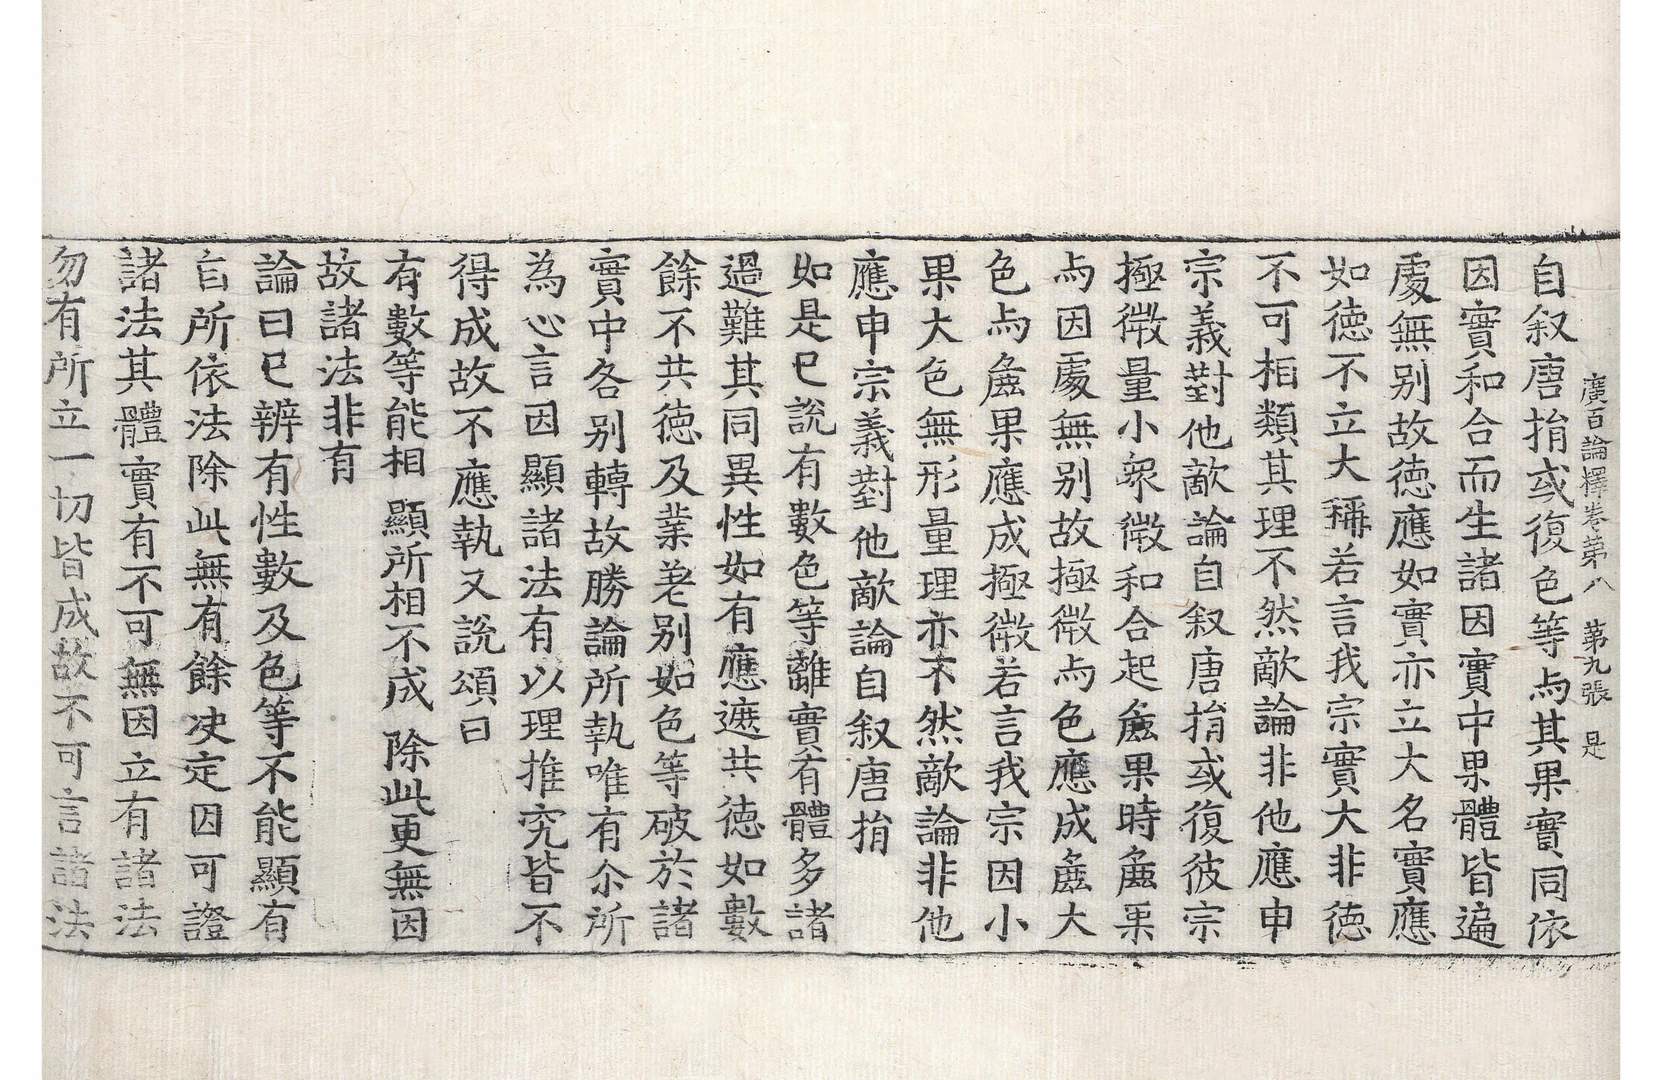 廣百論釋卷苐八　苐九張　是
自叙唐捐或復色等与其果實同依
因實和合而生諸因實中果體皆遍
處無別故德應如實亦立大名實應
如德不立大稱若言我宗實大非德
不可相類其理不然敵論非他應申
宗義對他敵論自叙唐捐或復彼宗
極微量小衆微和合起麁果時麁果
与因處無別故極微与色應成麁大
色与麁果應成極微若言我宗因小
果大色無形量理亦不然敵論非他
應申宗義對他敵論自叙唐捐
如是已說有數色等離實有體多諸
過難其同異性如有應遮共德如數
餘不共德及業差別如色等破於諸
實中各別轉故勝論所執唯有尒所
為心言因顯諸法有以理推究皆不
得成故不應執又說頌曰
有數等能相 顯所相不成 除此更無因
故諸法非有
論曰已辨有性數及色等不能顯有
自所依法除此無有餘决定因可證
諸法其體實有不可無因立有諸法
勿有所立一切皆成故不可言諸法